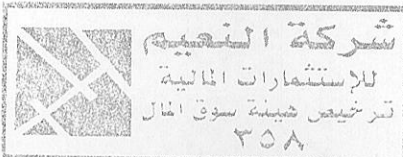 شركة النعيم
للإستثمارات المالية
ترخيص هيئة سوق المال
٣٥٨